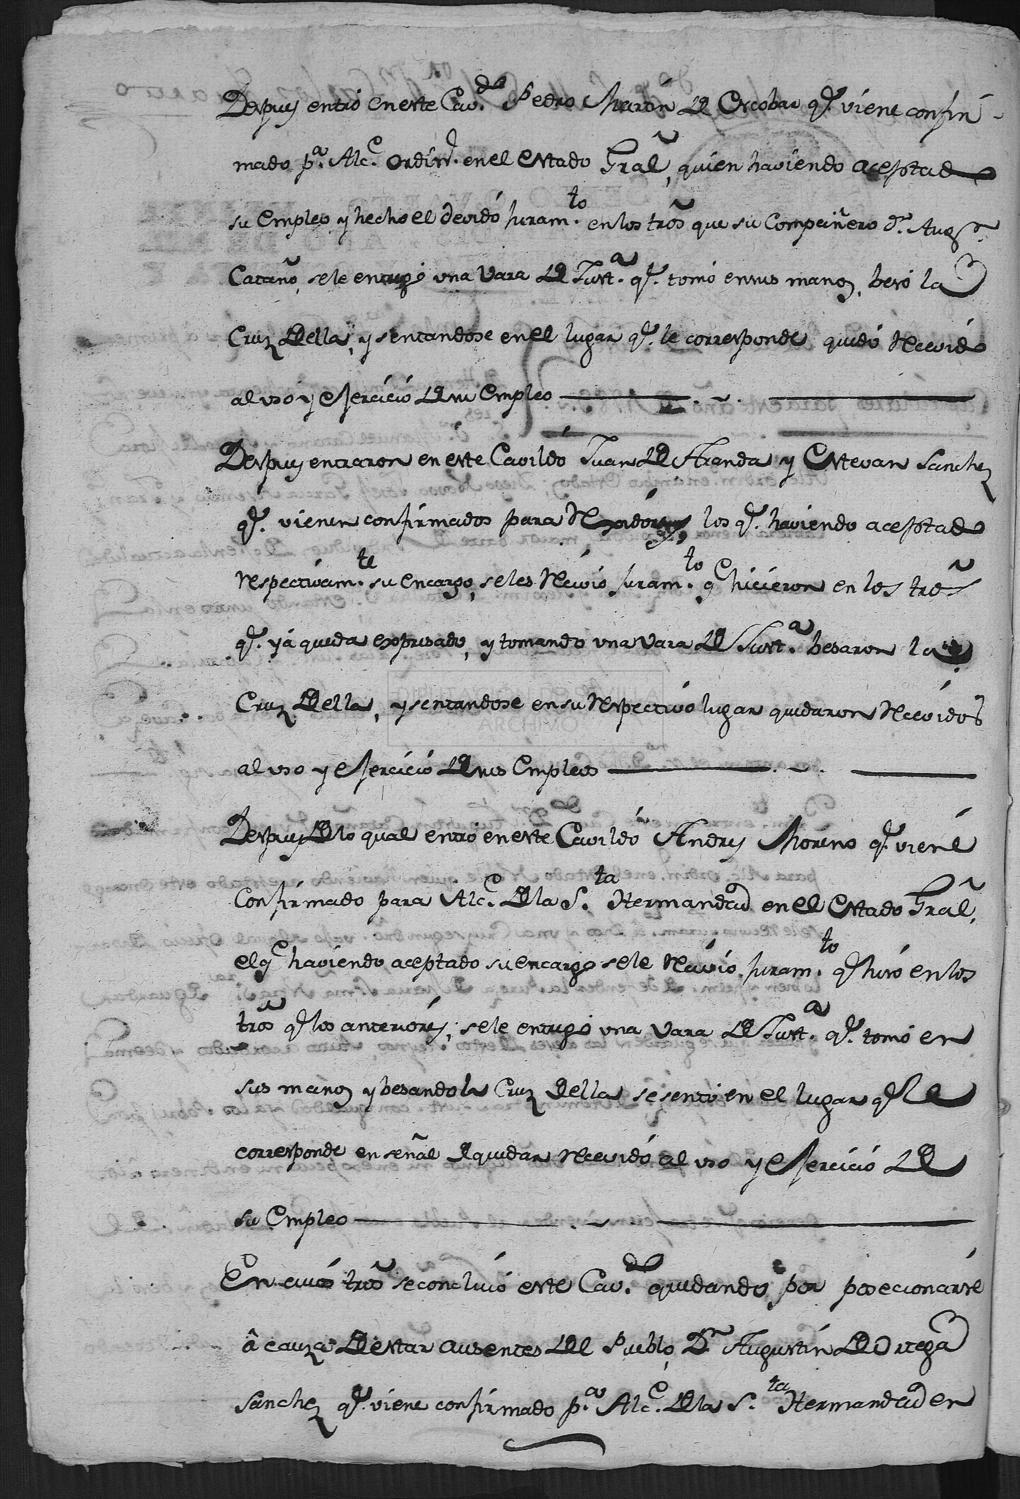 Despues entró en este Cavdo. Pedro Martin de Escobar qe. viene confir-
mado pa. Alce. ordinº. en el estado Gral, quien haviendo aceptado
su Empleo y hecho el devido Juramto. en los tros que su Compañero dn. Augn.
Cataño, se le entregó una Vara de Justa. qe. tomó en sus manos, besó la
Cruz della, y sentandose en el lugar qe. le corresponde quedó Recevido
al uso y exercicio de su Empleo
Despues entraron en este Cavildo Juan de Aranda y Estevan Sanchez
qe. vienen confirmados para Rexidores, los qe. haviendo aceptado
Respectivamte. su encargo, se les Recivió Juramto. qe hicieron en los tros
qe. yá queda expresado, y tomando una vara de Justa. besaron la
Cruz della, y sentandose en su Respectivo lugar quedaron Recevidos
al uso y exercicio de sus Empleos
DIPUTACIÓN DE SEVILLA
ARCHIVO
Despues de lo qual entró en este Cavildo Andres Moreno qe. viene
Confirmado para Alce. de la Sta. Hermandad en el estado Gral.
el qe haviendo aceptado su encargo se le Recivió Juramto. qe hizo en los
tros qe los anteriores, se le entregó una Vara de Justa. qe. tomó en
sus manos y besando la Cruz della se sentó en el lugar qe le
corresponde en señal de quedar Recevido al uso y exercicio de
su Empleo
En cuios tros se concluió este Cavdo. quedando por posecionarse
â cauza de estar ausentes del Pueblo Dn Augustin de Ortega
Sanchez qe. viene confirmado pa. Alce. de la Sta. Hermandad en